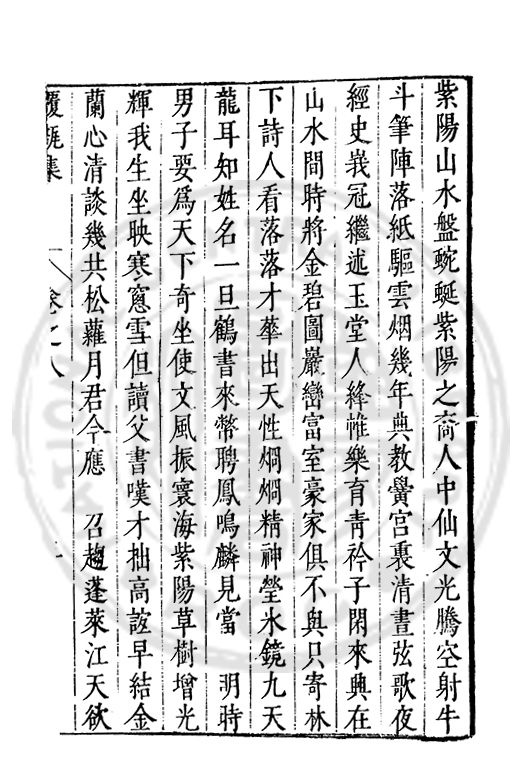 紫陽山水盤蜿蜒紫陽之裔人中仙文光騰空射牛
斗筆陣落紙驅雲烟幾年典教黌宮裏清晝弦歌夜
經史峩冠繼述玉堂人絳帷樂育青衿子閑來興在
山水間時將金碧圖巖巒富室豪家俱不與只寄林
下詩人看落落才華出天性烱烱精神瑩氷鏡九天
龍耳知姓名一旦鶴書來幣聘鳳鳴麟見當　明時
男子要爲天下奇坐使文風振寰海紫陽草樹增光
輝我生坐映寒窻雪但讀父書嘆才拙高誼早結金
蘭心清談幾共松蘿月君今應　召趨蓬萊江天欲
覆瓿集　卷之八